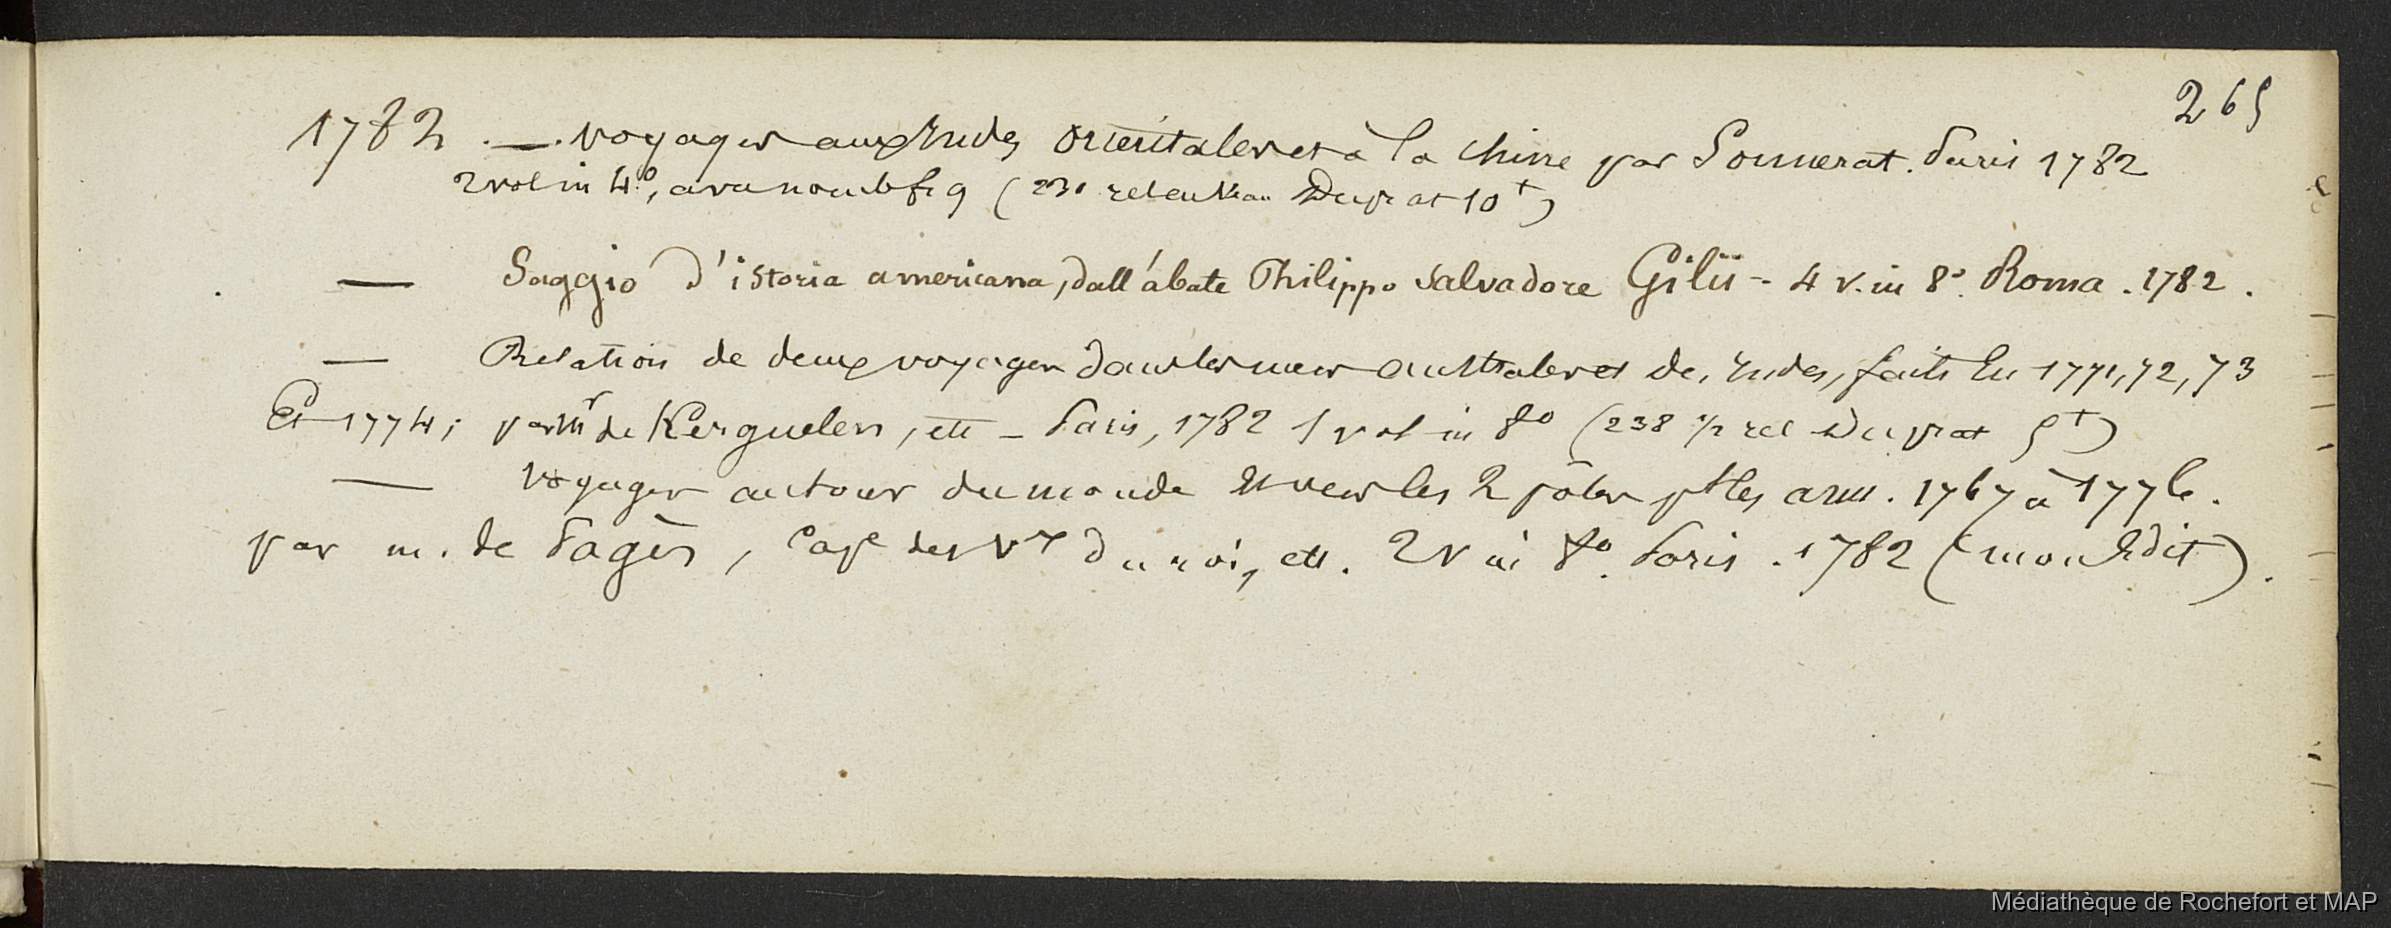 265
1782 . — . voyages aux Indes orientales et à la Chine par Sonnerat. Paris 1782
2 vol in 4º, avec nomb fig (230 rel en veau Duprat 10+)
— Saggio d'istoria americana, dall'abate Philippo Salvadore Gilii - 4 v. in 8º. Roma . 1782 .
— Relation de deux voyages dans les mers australes et des Indes, faits en 1771, 72, 73
et 1774 ; par Mr de Kerguelen, etc - Paris, 1782 1 vol in 8º (238 1/2 rel Duprat 5+)
— Voyages autour du monde et vers les 2 pôles ptles ann . 1767 à 1776 .
par m. de Pagès, cape des vx du roi, etc . 2 v in 8º. Paris . 1782 (mon édit) .
Médiathèque de Rochefort et MAP